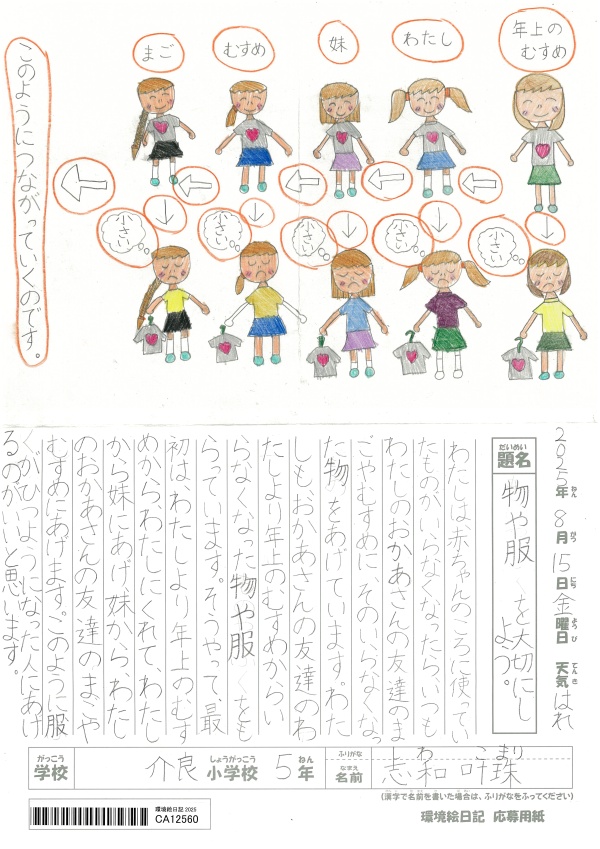 年上のむすめ
わたし
妹
むすめ
まご
小さい
小さい
小さい
小さい
小さい
このようにつながっていくのです。
2025年8月15日金曜日 天気はれ
ねん がつ にち ようび てんき
だいめい
題名
物や服を大切にしよう。
わたしは赤ちゃんのころに使ってい
たものがいらなくなったら、いつも
わたしのおかあさんの友達のま
ごやむすめに、そのいらなくなっ
た物をあげています。わた
しもおかあさんの友達のわ
たしより年上のむすめからい
らなくなった物や服をも
らっています。そうやって、最
初は、わたしより年上のむす
めから、わたしにくれて、わたし
から妹にあげ妹から、わたし
のおかあさんの友達のまごや
むすめにあげます。このように服
くがひつようになった人にあげ
るのがいいと思います。
がっこう
学校
介良
しょうがっこう
小学校
5年
ねん
ふりがな
しわ こまり
なまえ
名前
志和
珠
(漢字で名前を書いた場合は、ふりがなをふってください)
環境絵日記 2025
CA12560
環境絵日記 応募用紙